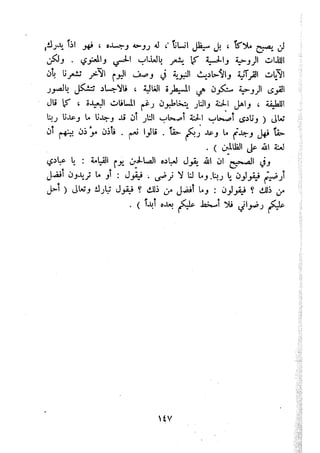 لن يصبح ملاكاً ، بل سيظل انساناً ، له روحه وجسده ، فهو اذاً يدرك
اللذات الروحية والحسية كما يشعر بالعذاب الحسي والمعنوي . ولكن
الآيات القرآنية والأحاديث النبوية في وصف اليوم الآخر تشعرنا بأن
القوى الروحية ستكون هي المسيطرة الغالبة ، فالاجساد تتشكل بالصور
اللطيفة ، واهل الجنة والنار يتخاطبون رغم المسافات البعيدة ، كما قال
تعالى ( ونادى أصحاب الجنة أصحاب النار أن قد وجدنا ما وعدنا ربنا
حقاً فهل وجدتم ما وعد ربكم حقاً . قالوا نعم . فأذن مؤذن بينهم أن
لعنة الله على الظالمين ) .
وفي الصحيح ان الله يقول لعباده الصالحين يوم القيامة : يا عبادي
أرضيتم فيقولون يا ربنا . وما لنا لا نرضى . فيقول : أو ما تريدون أفضل
من ذلك ؟ فيقولون : وما أفضل من ذلك ؟ فيقول تبارك وتعالى ( أحل
عليكم رضواني فلا أسخط عليكم بعده أبداً ) .
١٤٧